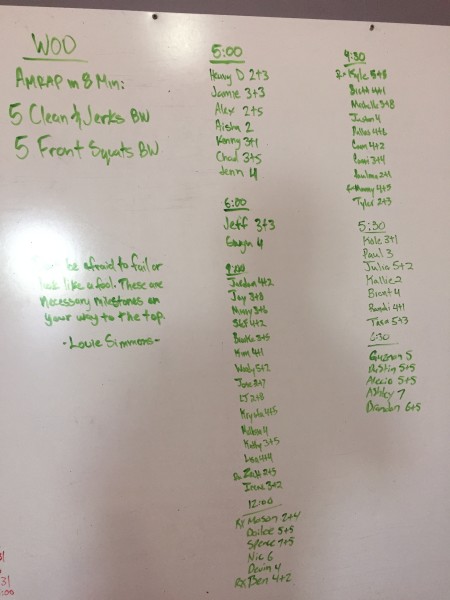 WOD
AMRAP in 8 Min:
5 Clean & Jerks BW
5 Front Squats BW
be afraid to fail or
like a fool. These are
necessary milestones on
your way to the top.
-Louie Simmons-
5:00
Harry D 2+3
Jamie 3+3
Alex 2+5
Aisha 2
Kenny 3+1
Chad 3+5
Jenn 4
6:00
Jeff 3+3
Gwyn 4
9:00
Jordan 4+2
Jay 3+8
Missy 3+6
4+2
3+5
Kim 4+1
Wendy 5+2
Jane 3+7
LJ 2+8
Krysta 4+5
4
Kathy 3+5
Lisa 4+4
Rx
Irene 3+2
12:00
Rx Mason 2+4
5+5
Spence 7+5
Nic 6
Devin 4
Rx Ben 4+2
4:30
Rx Kyle 5+8
Brett 4+1
Michelle 3+8
Justin 4
Dallas 4+6
Cam 4+2
3+4
Paulina 2+1
4+5
Tyler 2+3
5:30
Kole 3+1
Paul 3
Julia 5+2
Kallie 2
Brant 4
Randi 4+1
Tara 5+3
6:30
5
Dustin 5+5
Alecio 5+5
Ashley 7
Brandon 6+5